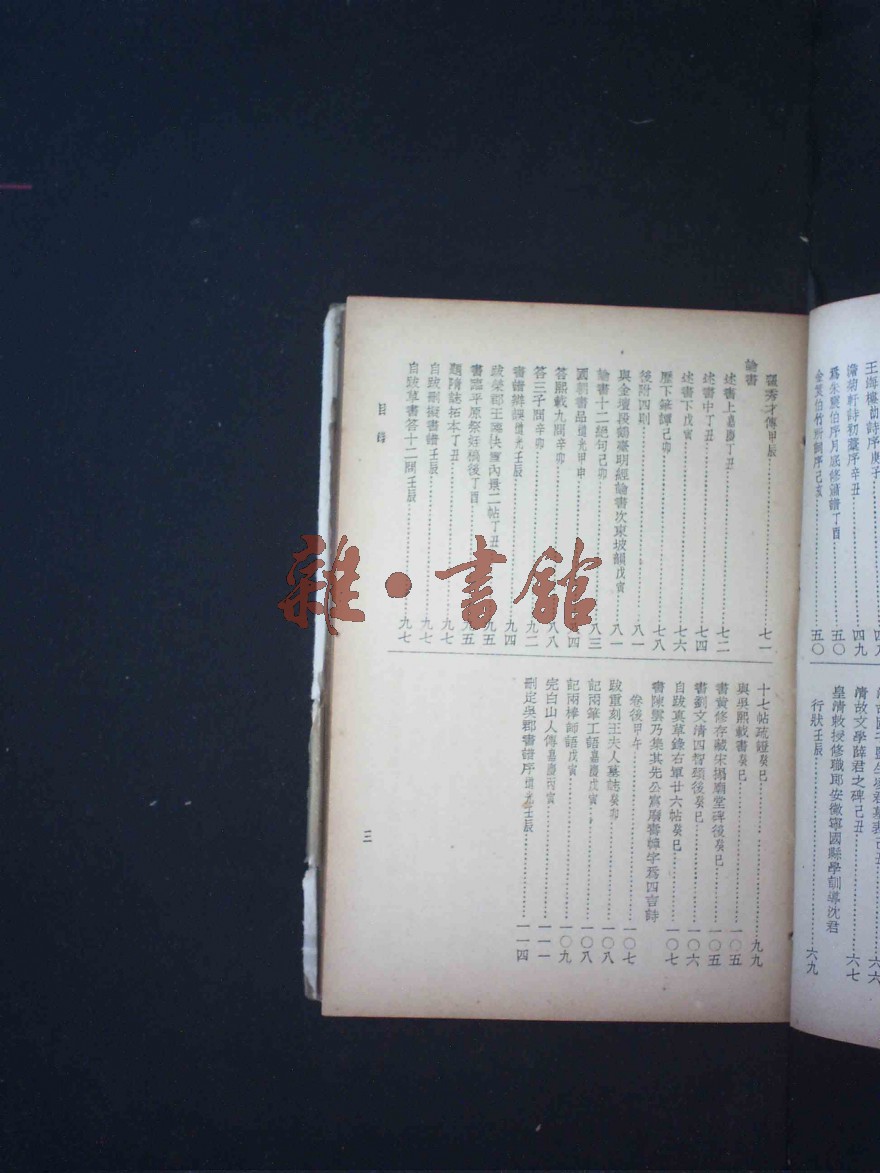 王海樓勗詩序庚子……四八
瀞菊軒詩初藳序辛丑……四九
爲朱震伯序月底修簫譜丁酉……五〇
金筤伯竹所詞序己亥……五〇
清故文學薛君之碑己丑……六七
皇清敕授修職郎安徽寧國縣學訓導沈君
行狀壬辰……六九
翟秀才傳甲辰……七一
論書
述書上嘉慶丁丑……七二
述書中丁丑……七四
述書下戊寅……七六
歷下筆譚己卯……七八
後附四則……八一
與金壇段鶴臺明經論書次東坡韻戊寅……八一
論書十二絕句己卯……八三
國朝書品道光甲申……八四
答熙載九問辛卯……八八
答三子問辛卯……九二
書譜辯誤道光壬辰……九四
跋榮郡王臨快雪內景二帖丁丑……九五
書臨平原祭姪稿後丁酉……九五
題隋誌拓本丁丑……九七
自跋刪擬書譜壬辰……九七
自跋草書答十二問壬辰……九七
十七帖疏證癸巳……九九
與吳熙載書癸巳……一〇五
書黃修存藏宋搨廟堂碑後癸巳……一〇五
書劉文清四智頌後癸巳……一〇六
自跋真草錄右軍廿六帖癸巳……一〇七
書陳雲乃集其先公寫廢書幛字爲四言詩
卷後甲午……一〇七
跋重刻王夫人墓誌癸卯……一〇八
記兩筆工語嘉慶戊寅……一〇八
記兩棒師語戊寅……一〇九
完白山人傳嘉慶丙寅……一一一
刪定吳郡書譜序道光壬辰……一一四
目錄
三
雜·書館